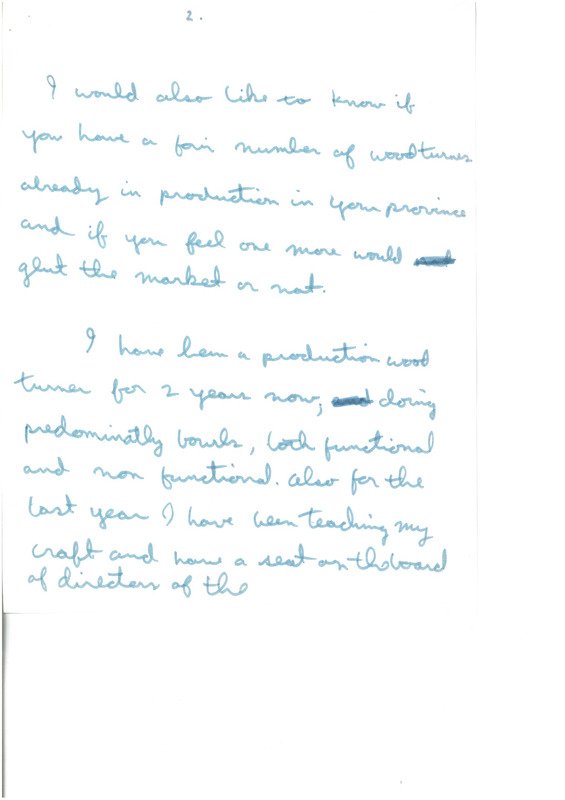 2.
I would also like to know if
you have a fair number of woodturners
already in production in your province
and if you feel one more would
glut the market or not.
I have been a production wood
turner for 2 years now, doing
predominatly bowls, both functional
and non functional. Also for the
last year I have been teaching my
craft and have a seat on the board
of directors of the